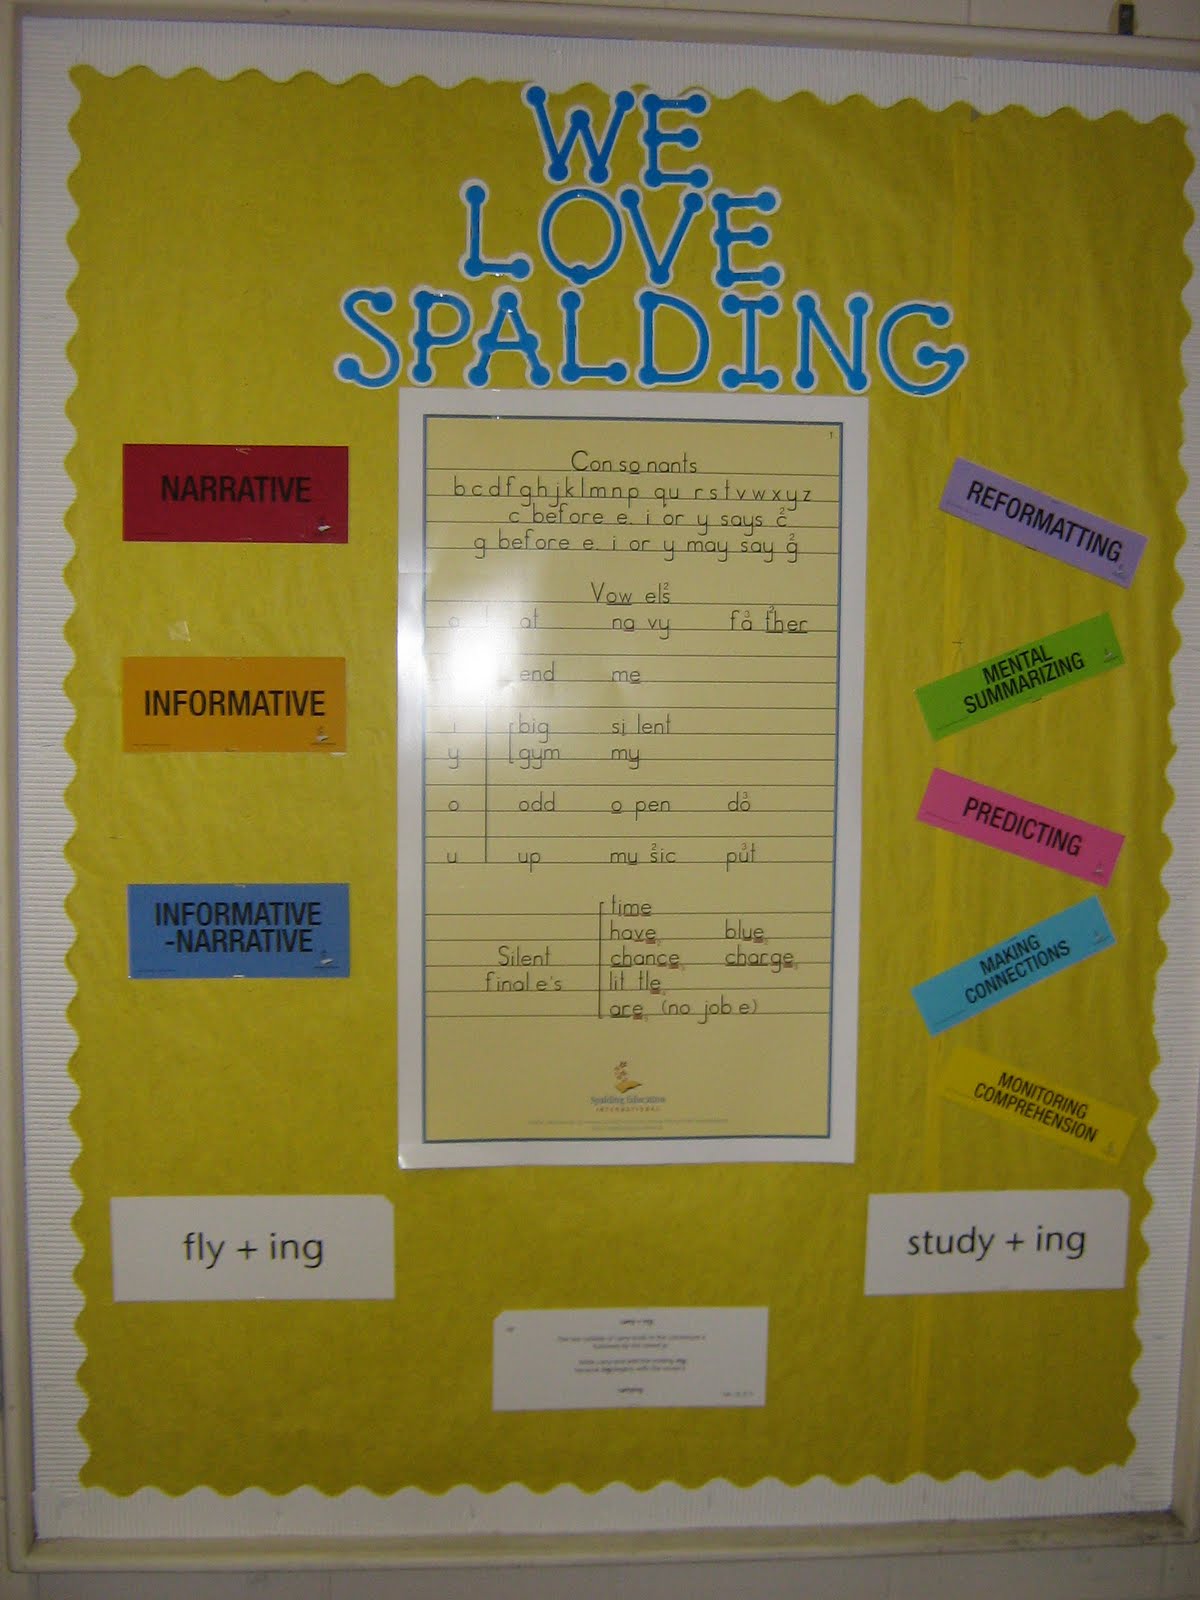 WE
LOVE
SPALDING
NARRATIVE
INFORMATIVE
INFORMATIVE
-NARRATIVE
1
Con so nants
b c d f g h j k l m n p qu r s t v w x y z
c before e, i or y says c²
g before e, i or y may say g²
Vow els²
a at na vy fa³ ther²
end me
i big si lent
y gym my
o odd o pen do³
u up mu sic² put³
time
have₂ blue₂
Silent chance₃ charge₃
final e's lit tle₄
are₅ (no job e)
Spalding Education
INTERNATIONAL
REFORMATTING
MENTAL
SUMMARIZING
PREDICTING
MAKING
CONNECTIONS
MONITORING
COMPREHENSION
fly + ing
study + ing
carrying